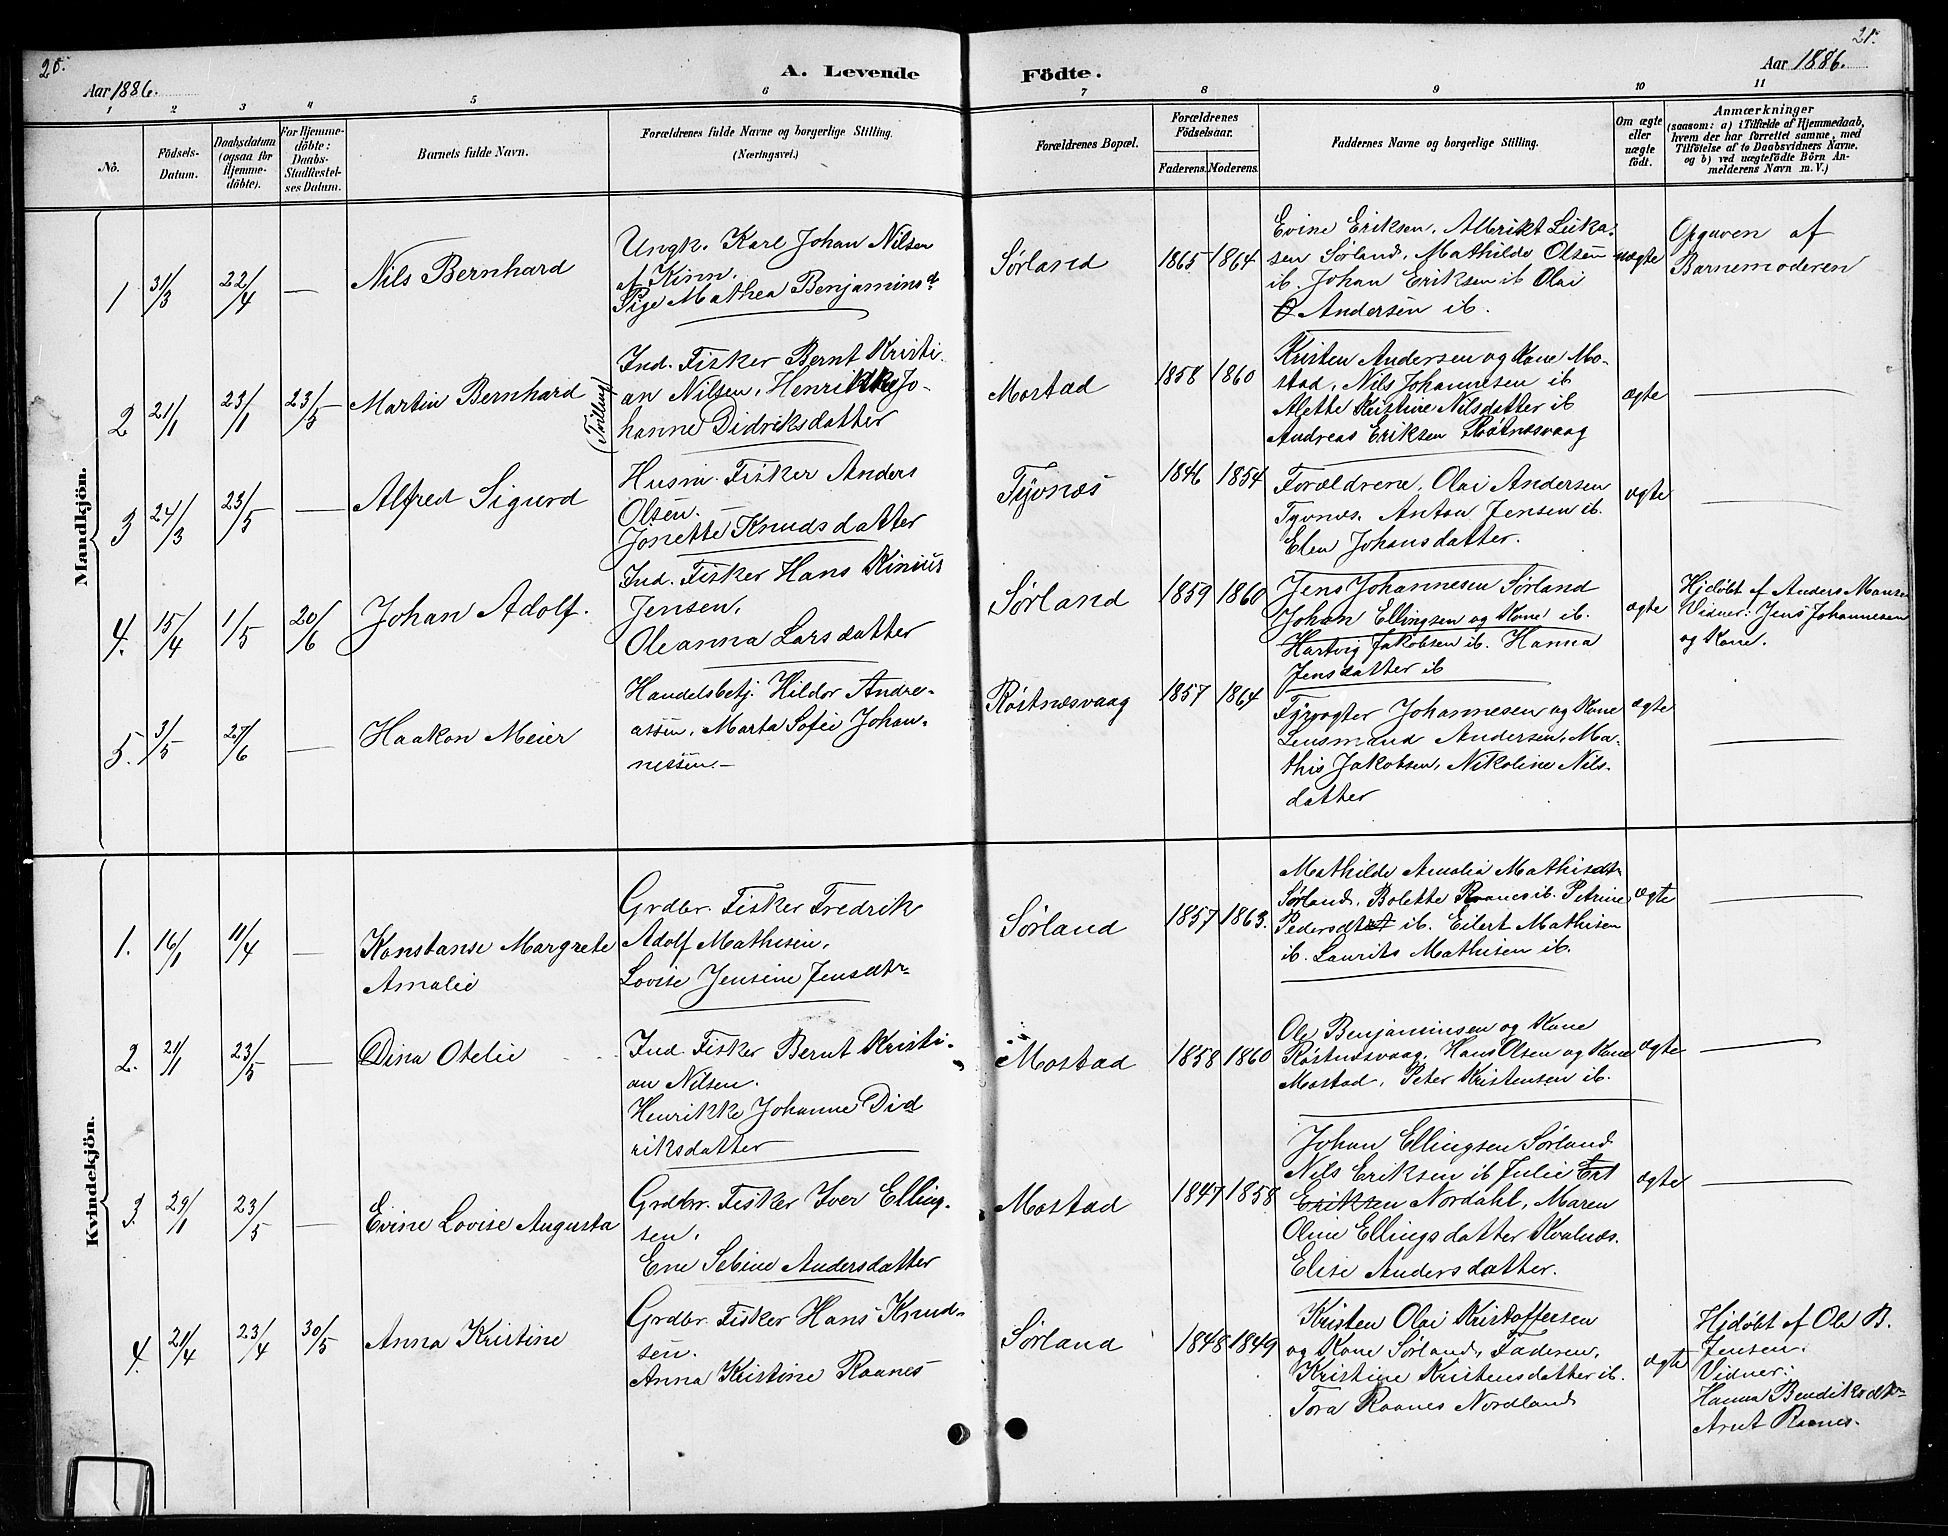 20.
21.
Aar 1886.
A. Levende Födte.
Aar 1886.
1 2 3 4 5 6 7 8 9 10 11
No.
Födsels-
Datum.
Daabsdatum
(ogsaa for
Hjemme-
döbte).
For Hjemme-
döbte:
Daabs-
Stadfæstel-
ses Datum.
Barnets fulde Navn.
Forældrenes fulde Navne og borgerlige Stilling.
(Næringsvei.)
Forældrenes Bopæl.
Forældrenes
Födselsaar.
Faderens. Moderens.
Faddernes Navne og borgerlige Stilling.
Om ægte
eller
uægte
födt.
Anmærkninger
(saasom: a) i Tilfælde af Hjemmedaab,
hvem der har forrettet samme, med
Tilföielse af to Daabsvidners Navne,
og b) ved uægtefödte Börn An-
melderens Navn m. V.)
Mandkjön.
1 31/3 22/4 — Nils Bernhard
Ungk. Karl Johan Nilsen
af Kinn.
Pige Mathea Benjaminsd.
Sørland 1865 1864
Evine Eriksen, Albrikt Luka-
sen Sørland, Mathilde Olsen
ib. Johan Eriksen ib Olai
Andersen ib.
uægte
Opgaven af
Barnemoderen
2 21/1 23/1 23/5 Martin Bernhard
(Tvilling)
Ind. Fisker Bernt Kristi-
an Nilsen, Henrikke Jo-
hanne Didriksdatter
Mostad 1858 1860
Kristen Andersen og Kone Mo-
stad, Nils Johannesen ib
Alette Kristine Nilsdatter ib
Andreas Eriksen Røstnæsvaag
ægte —
3 24/3 23/5 — Alfred Sigurd
Husm. Fisker Anders
Olsen.
Jonette Knudsdatter
Tyvnæs 1846 1854
Forældrene, Olai Andersen
Tyvnæs. Anton Jensen ib.
Elen Johansdatter.
ægte —
4. 15/4 1/5 20/6 Johan Adolf.
Ind. Fisker Hans Kinius
Jensen,
Oleanna Larsdatter
Sørland 1859 1860
Jens Johannesen Sørland
Johan Ellingsen og Kone ib.
Hartvig Jakobsen ib. Hanna
Jensdatter ib
ægte
Hjdøbt af Anders
Vidner: Jens Johannesen
og Kone.
5. 3/5 27/6 — Haakon Meier
Handelsbetj. Hildor Andre-
assen, Marta Sofie Johan-
nessen.—
Røstnæsvaag 1857 1864
Fyrvogter Johannesen og Kone
Lensmand Andersen, Ma-
this Jakobsen, Nikoline Nils-
datter
ægte —
Kvindekjön.
1. 16/1 11/4 — Konstanse Margrete
Amalie
Grdbr. Fisker Fredrik
Adolf Mathisen,
Lovise Jensine Jensdtr
Sørland 1857 1863.
Mathilde Amalia Mathisdtr
Sørland, Bolette Raanes ib. Petrine
Pedersdtr ib. Eilert Mathisen
ib. Laurits Mathisen ib.
ægte —
2. 21/1 23/5 — Dina Otelie
Ind. Fisker Bernt Kristi-
an Nilsen.
Henrikke Johanne Did
riksdatter
Mostad 1858 1860
Ole Benjaminsen og Kone
Røstnæsvaag, Hans Olsen og Kone
Mostad, Peter Kristensen ib.
ægte —
3. 29/1 23/5 — Evine Lovise Augusta
Grdbr. Fisker Iver Elling-
sen,
Ene Sebine Andersdatter
Mostad 1847 1858
Johan Ellingsen Sørland
Nils Eriksen ib Julie Ert
Eriksen Nordahl, Maren
Oline Ellingsdatter Kvalnæs.
Elise Andersdatter.
ægte —
4. 21/4 23/4 30/5 Anna Kristine
Grdbr. Fisker Hans Knud-
sen.
Anna Kristine Raanes
Sørland 1848 1849
Kristen Olai Kristoffersen
og Kone Sørland, Faderen,
Kristine Kristensdatter ib.
Tora Raanes Nordland
ægte
Hjdøbt af Ole B.
Jensen.
Vidner:
Hanna Bendiksdtr
Arnt Raanes.